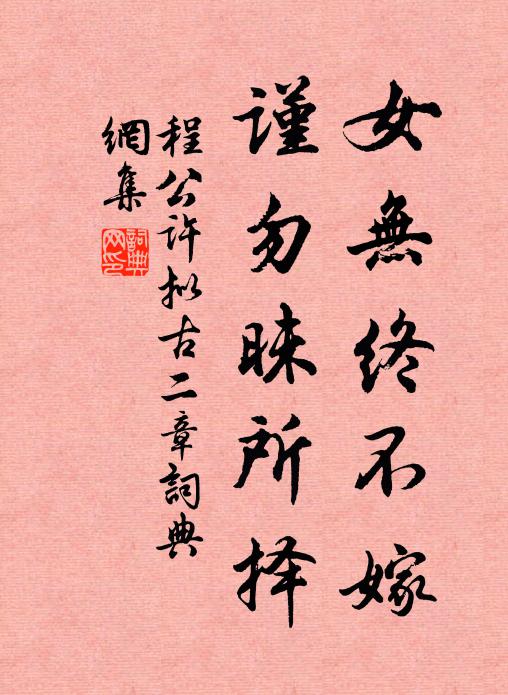 女無終不嫁
謹勿昧所择
程公许拟古二章詞典
網集
詞典
网印